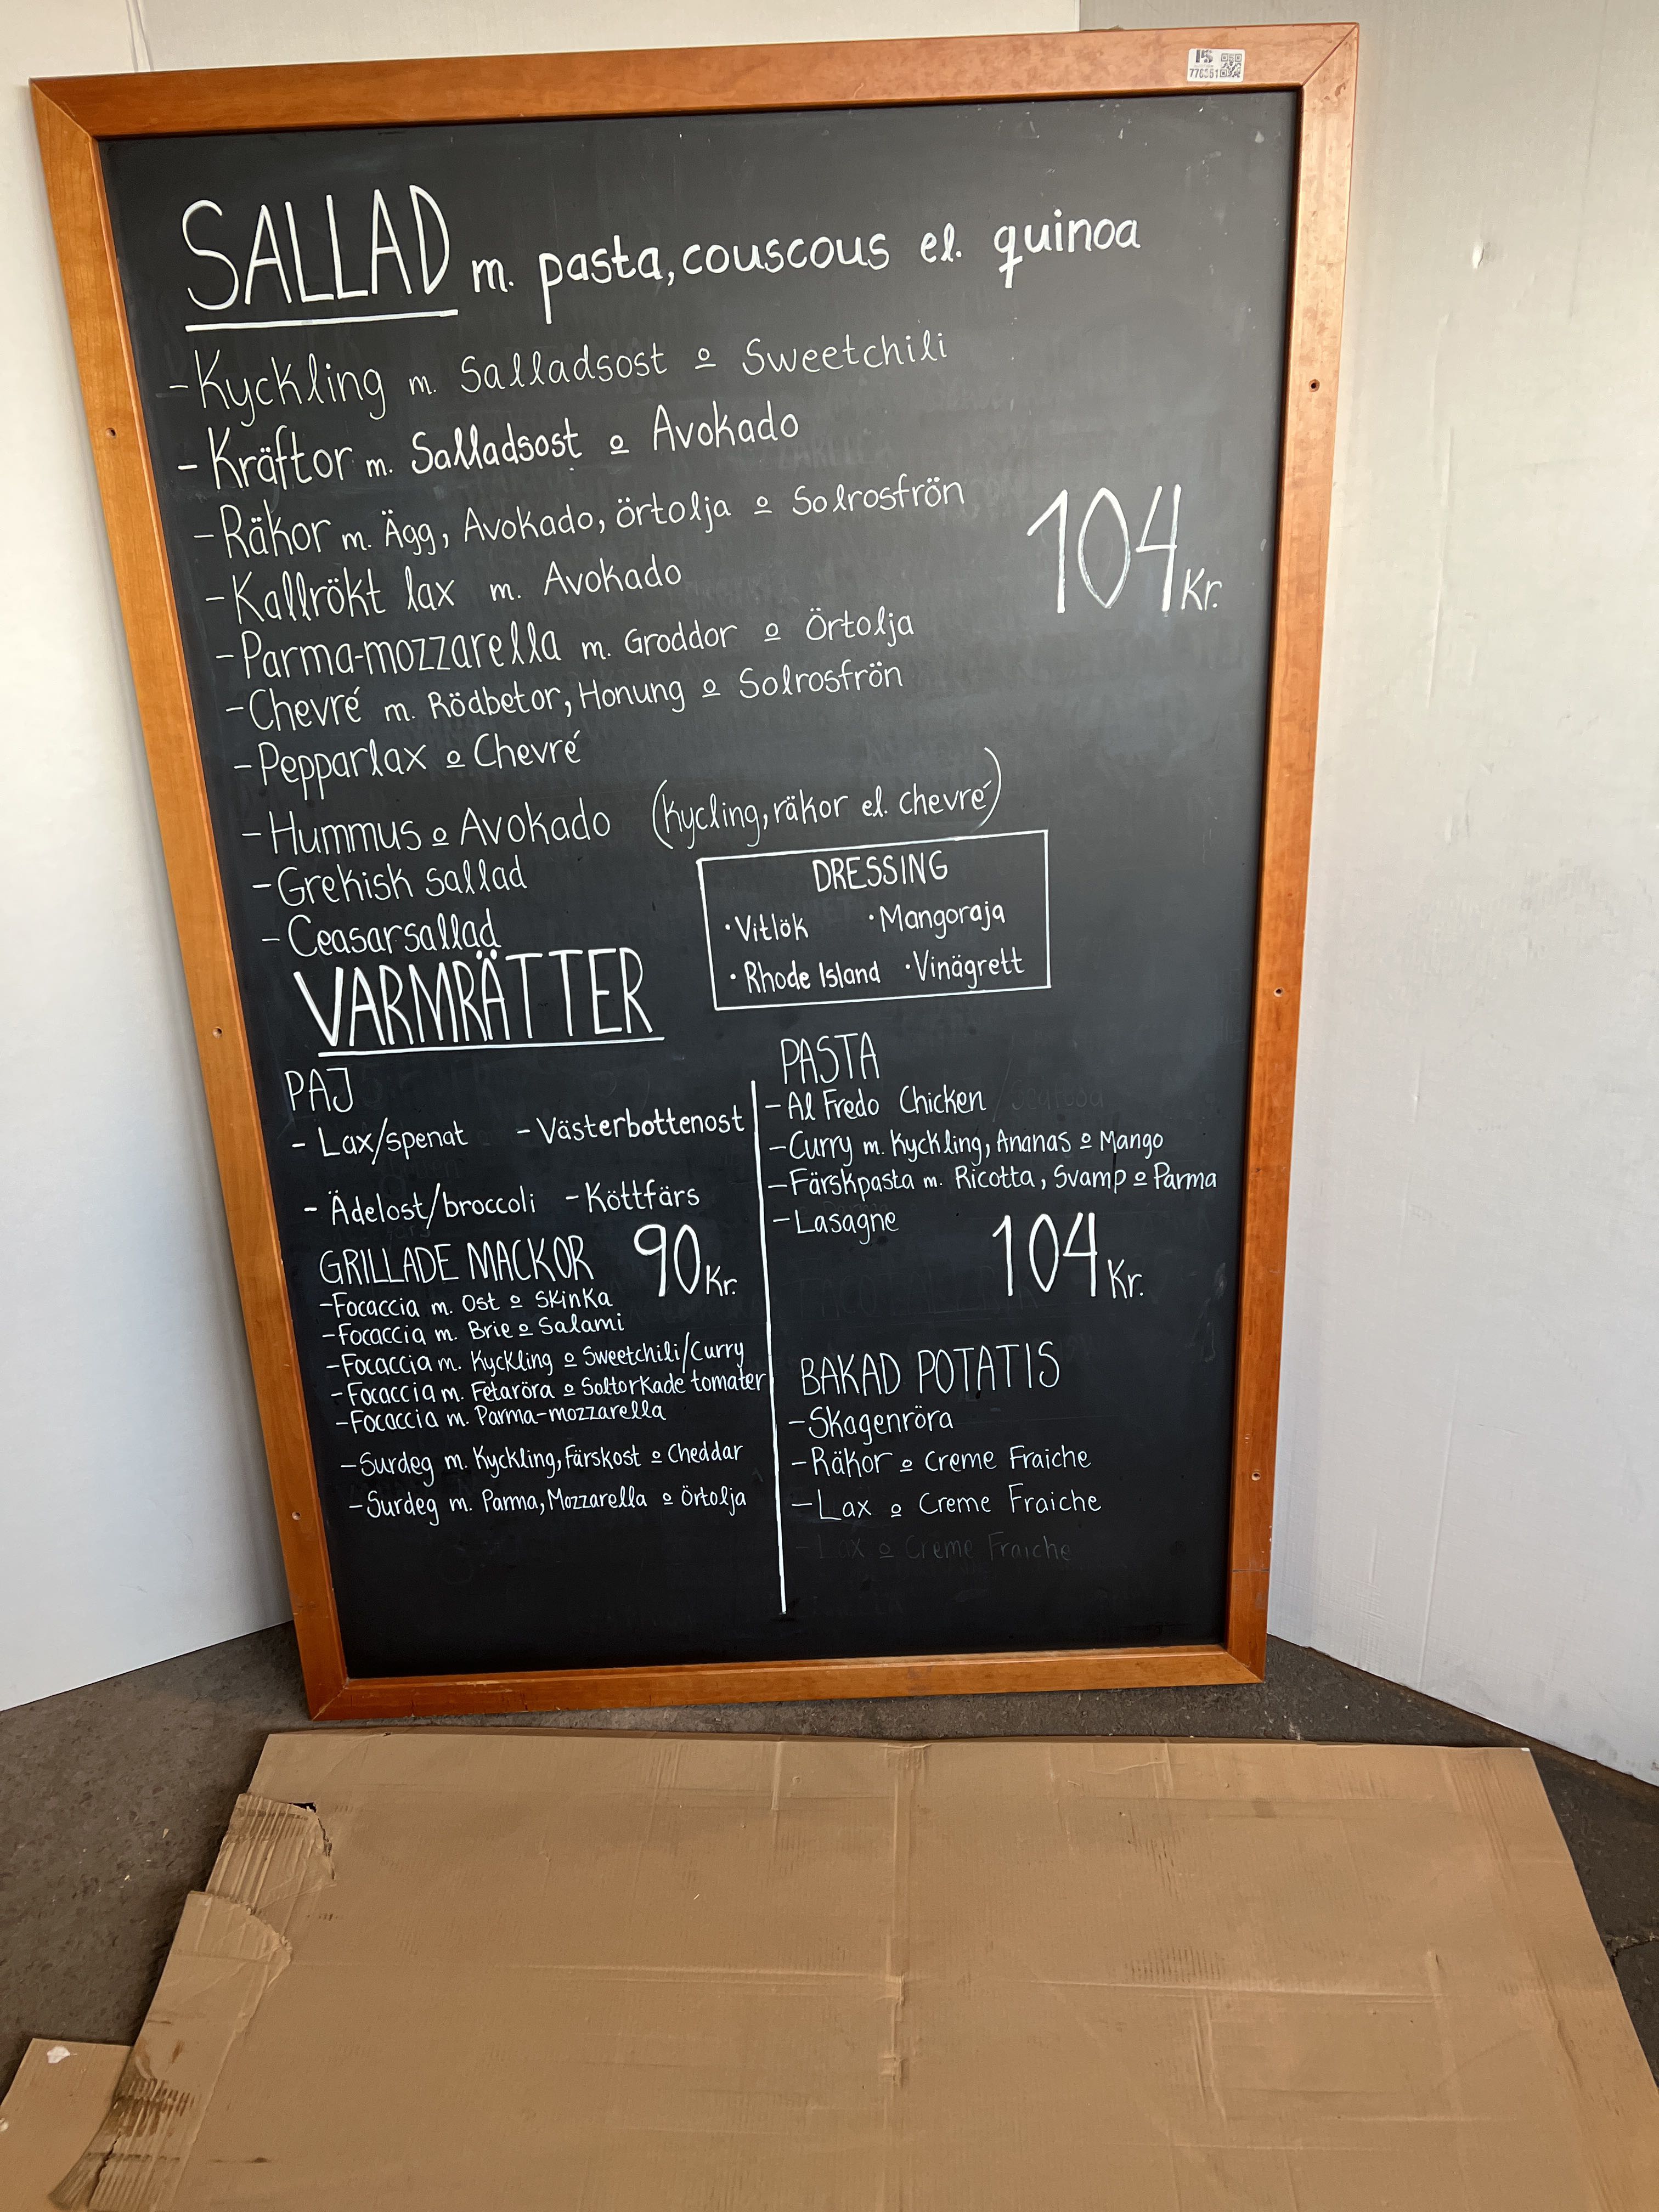 PS
776351
SALLAD m. pasta, couscous el. quinoa
-Kyckling m. Salladsost o Sweetchili
-Kräftor m. Salladsost o Avokado
-Räkor m. Ägg, Avokado, örtolja o Solrosfrön
-Kallrökt lax m. Avokado
104 Kr.
-Parma-mozzarella m. Groddor o Örtolja
-Chevré m. Rödbetor, Honung o Solrosfrön
-Pepparlax o Chevré
-Hummus o Avokado (kycling, räkor el. chevré)
-Grekisk sallad
-Ceasarsallad
DRESSING
·Vitlök ·Mangoraja
·Rhode Island ·Vinägrett
VARMRÄTTER
PAJ
-Lax/spenat -Västerbottenost
-Ädelost/broccoli -Köttfärs
90 Kr.
GRILLADE MACKOR
-Focaccia m. Ost o Skinka
-Focaccia m. Brie o Salami
-Focaccia m. Kyckling o Sweetchili/Curry
-Focaccia m. Fetaröra o Soltorkade tomater
-Focaccia m. Parma-mozzarella
-Surdeg m. Kyckling, Färskost o Cheddar
-Surdeg m. Parma, Mozzarella o Örtolja
PASTA
-Al Fredo Chicken
-Curry m. Kyckling, Ananas o Mango
-Färskpasta m. Ricotta, Svamp o Parma
-Lasagne
104 Kr.
BAKAD POTATIS
-Skagenröra
-Räkor o Creme Fraiche
-Lax o Creme Fraiche
-Lax o Creme Fraiche